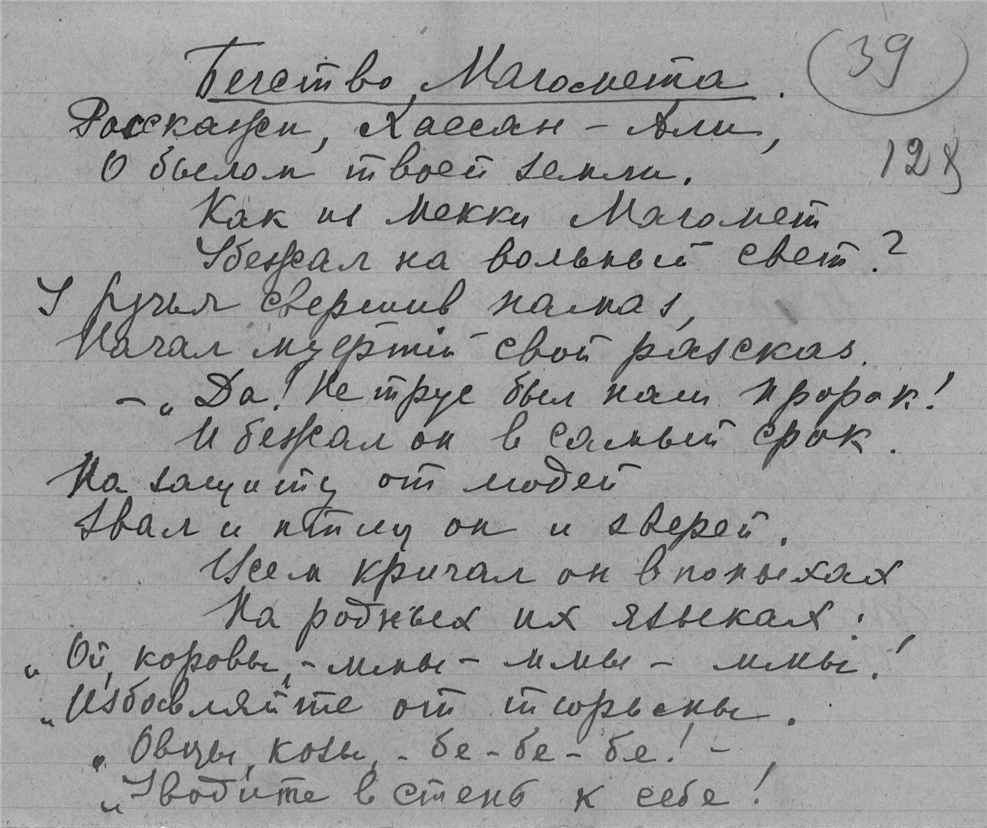 Бегство Магомета.
39
Расскажи, Хассан-Али,
128
О былом твоей земли.
Как из Мекки Магомет
Убежал на вольный свет?
У ручья свершив намаз,
Начал муэртiй свой разсказ.
– „Да! Не трус был наш пророк!
И бежал он в самый срок.
На защиту от людей
Звал и птиц он и зверей.
Всем кричал он впопыхах
На родных их языках:
„Ой, коровы, – ммы – ммы – ммы!
„Избавляйте от тюрьмы.
„Овцы, козы, – бе – бе – бе! –
„Уводите в степь к себе!